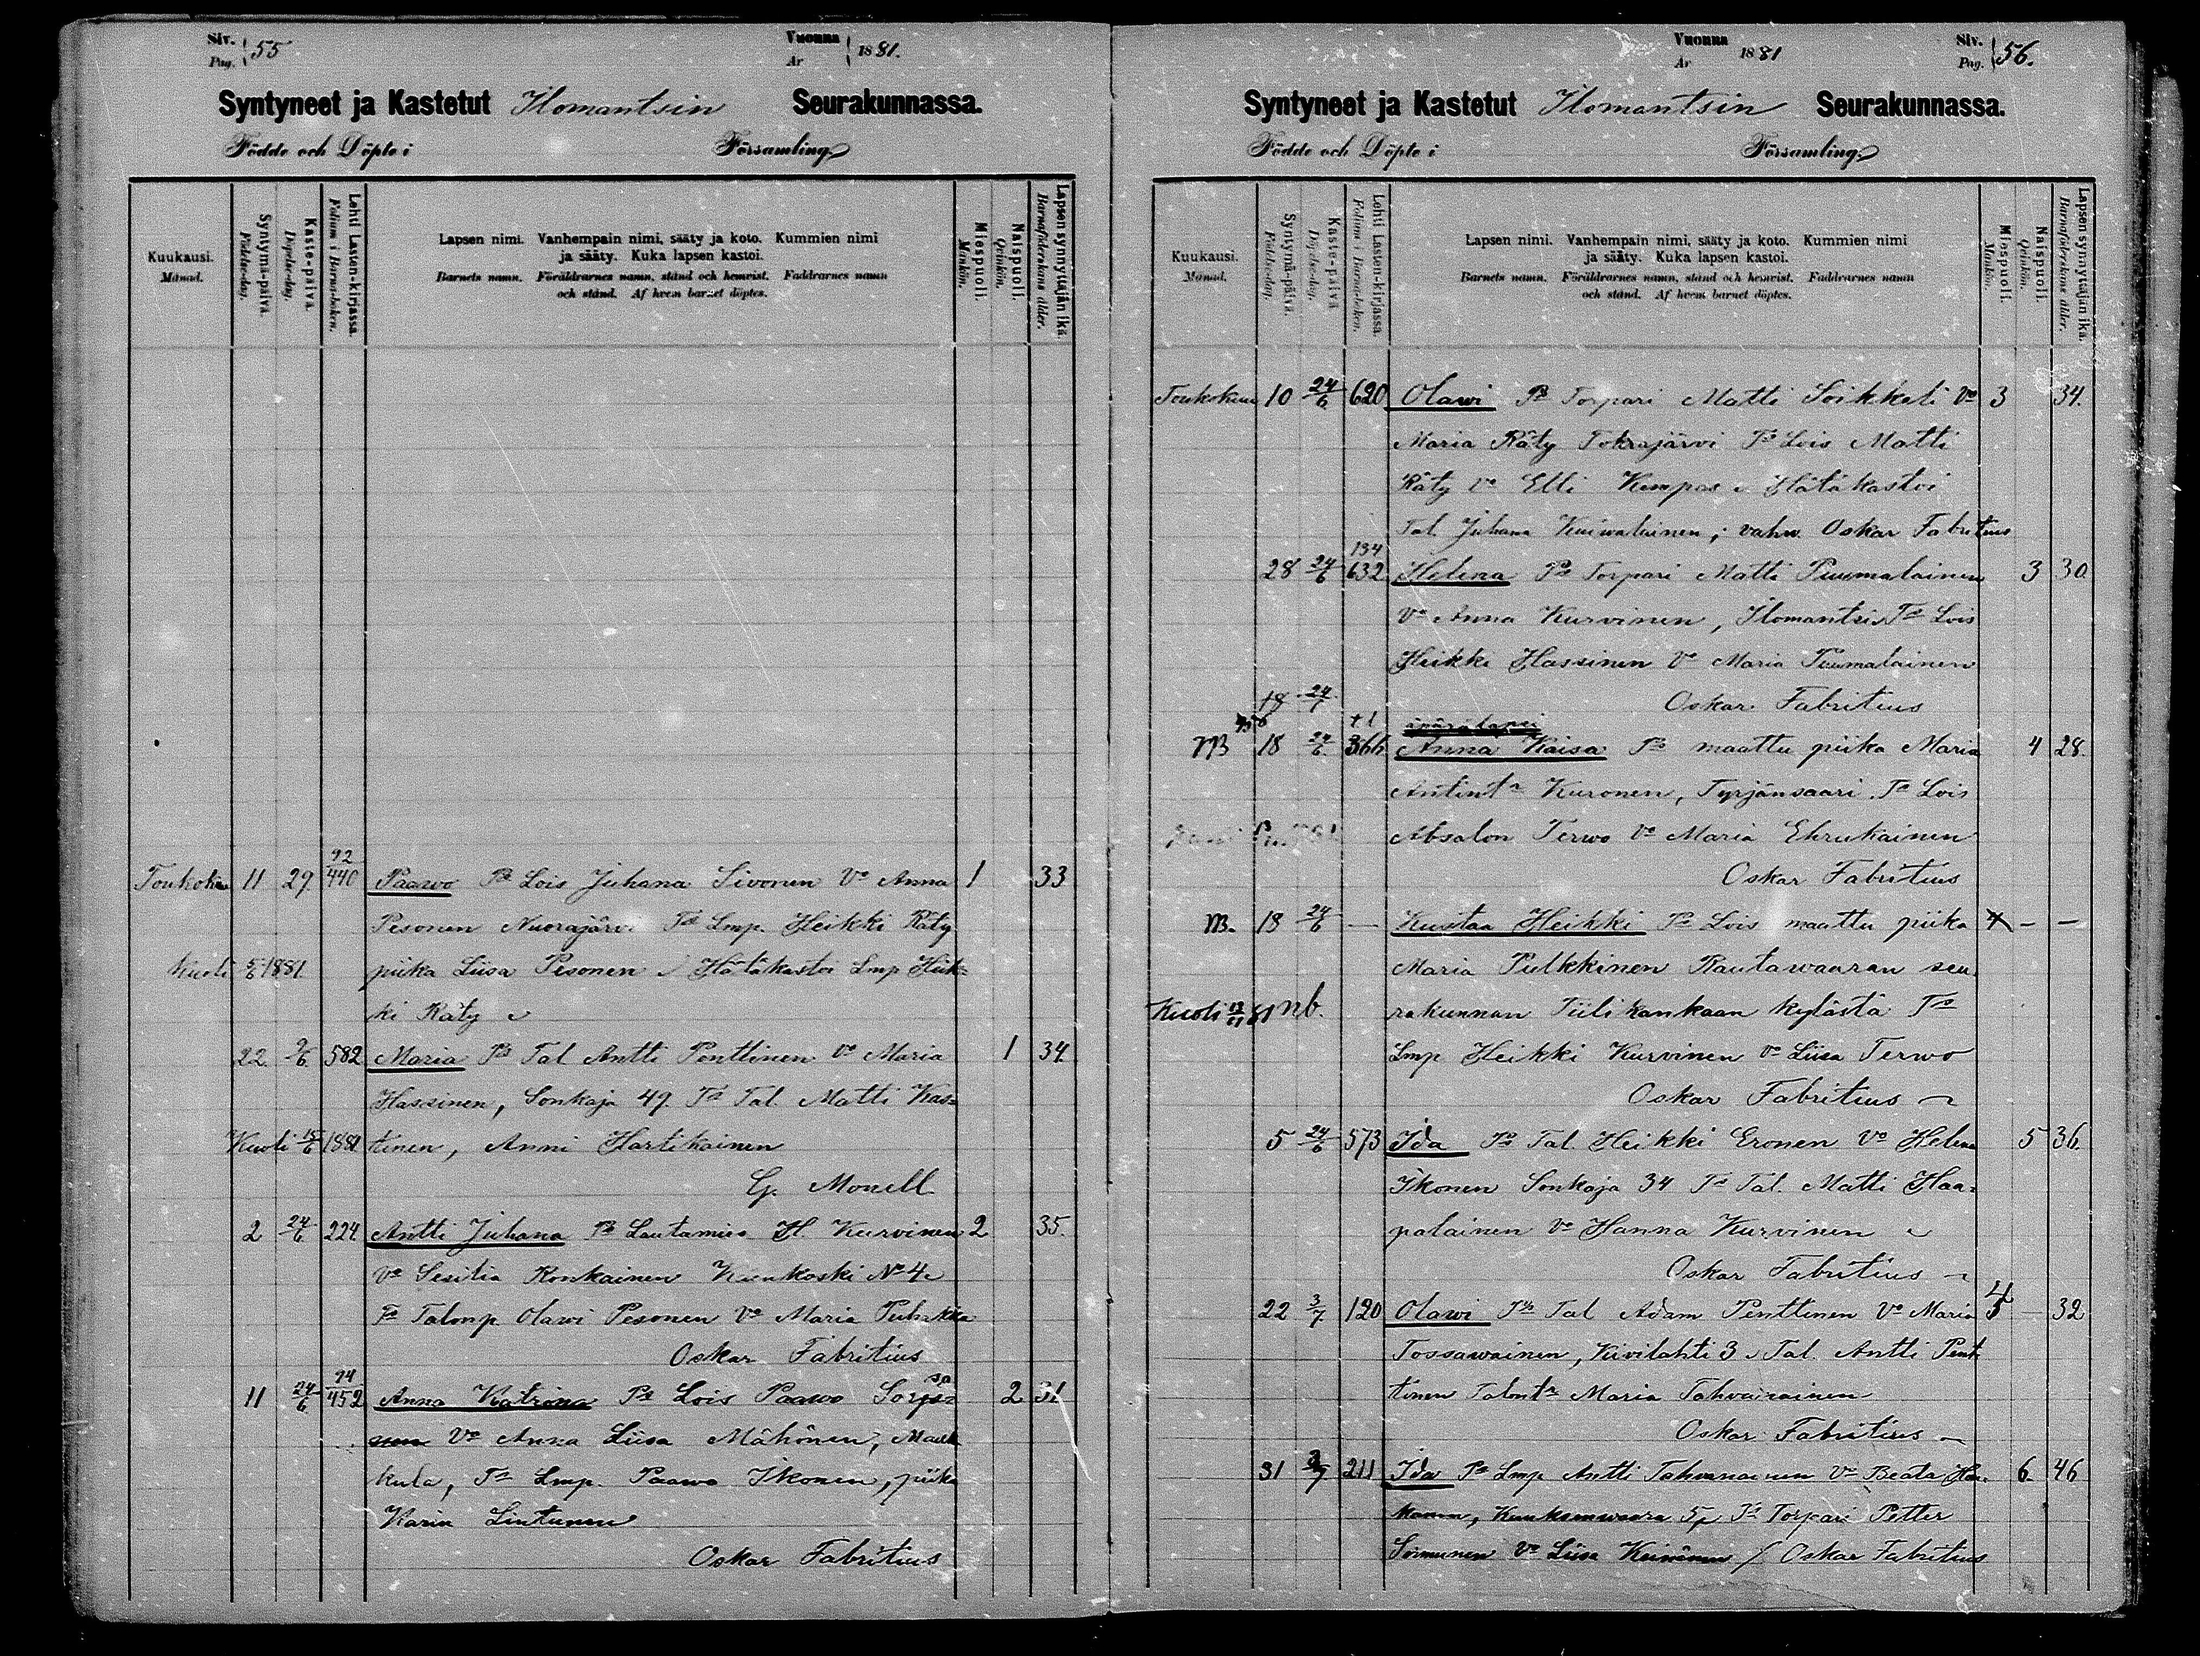 Siv. Pag. 55 Vuonna År 1881.
Syntyneet ja Kastetut Ilomantsin Seurakunnassa.
Födde och Döpte i Församling
Kuukausi. Månad.
Syntymä-päivä. Födelse-dag.
Kaste-päivä. Döpelse-dag.
Lehti Lasten-kirjassa. Folium i Barna-boken.
Lapsen nimi. Vanhempain nimi, sääty ja koto. Kummien nimi
ja sääty. Kuka lapsen kastoi.
Barnets namn. Föräldrarnes namn, stånd och hemvist. Faddrarnes namn
och stånd. Af hvem barnet döptes.
Miespuoli. Mankön.
Naispuoli. Qvinkön.
Lapsen synnyttäjän ikä. Barnaföderskans ålder.
92
Toukokuu 11 29 440 Paawo Ps Lois Juhana Sivonen Vo Anna 1 33
Pesonen Nuorajärvi Ts Lmp. Heikki Räty
Kuoli 5/6 1881. piika Liisa Pesonen Hätäkastoi Lmp Heik=
ki Räty
22 9/6 582 Maria Ps Tal Antti Penttinen Vo Maria 1 34
Hassinen, Sonkaja 49. Ts Tal. Matti Kas=
Kuoli 15/6 1881 tinen, Anni Hartikainen
G. Monell
2 24/6 224 Antti Juhana Ps Lautamies H. Kurvinen 2 35.
Vo Sesilia Ronkainen No 4
Ts Talonp Olawi Pesonen Vo Maria
Oskar Fabritius
94
11 24/6 452 Anna Katrina Ps Lois Paawo 2 31
Vo Anna Liisa Mähönen, Mauk
kula, Ts Lmp. Paawo Ikonen, piika
Karin Lintunen
Oskar Fabritius
Vuonna År 1881 Siv. Pag. 56.
Syntyneet ja Kastetut Ilomantsin Seurakunnassa.
Födde och Döpte i Församling
Kuukausi. Månad.
Syntymä-päivä. Födelse-dag.
Kaste-päivä Döpelse-dag.
Lehti Lasten-kirjassa. Folium i Barna-boken.
Lapsen nimi. Vanhempain nimi, sääty ja koto. Kummien nimi
ja sääty. Kuka lapsen kastoi.
Barnets namn. Föräldrarnes namn, stånd och hemvist. Faddrarnes namn
och stånd. Af hvem barnet döptes.
Miespuoli. Mankön.
Naispuoli. Qvinkön.
Lapsen synnyttäjän ikä. Barnaföderskans ålder.
Toukokuu 10 24/6 620 Olawi Ps Torpari Matti Soikkeli Vo 3 34.
Maria Räty Tokrajärvi Ts Lois Matti
Räty Vo Elli Hätäkastoi
Tal. Juhana ; vahw. Oskar Fabritius
134
28 24/6 632 Helena Ps Torpari Matti Puumalainen 3 30
Vo Anna Kurvinen, Ilomantsi Ts Lois
Heikki Hassinen Vo Maria Puumalainen
18 24/ Oskar Fabritius
äpärälapsi
18 24/6 366 Anna Kaisa Ps maattu piika Maria 4 28.
Antint:r Kuronen, Tyrjänsaari. Ts Lois
Absalon Terwo Vo Maria
Oskar Fabritius
18 24/6 — Kustaa Heikki Ps Lois maattu piika 4 — —
Maria Pulkkinen Rautawaaran seu
Kuoli 13/11 81 nb. rakunnan Tiilikankaan kylästä Ts
Lmp Heikki Kurvinen Vo Liisa Terwo
Oskar Fabritius
5 24/6 573 Ida Ps Tal. Heikki Eronen Vo Helena 5 36.
Ikonen Sonkaja 34 Ts Tal. Matti Haa=
palainen Vo Hanna Kurvinen
Oskar Fabritius
22 3/7 120 Olawi Ps Tal Adam Penttinen Vo Maria 4 — 32
Tossawainen, Kivilahti 3. Tal. Antti Pent
tinen Talont:r Maria Tahvanainen
Oskar Fabritius
31 3/7 211 Ida Ps Lmp Antti Tahvanainen Vo Beata 6. 46
5, Ts Torpari Petter
Sormunen Vo Liisa Keinänen / Oskar Fabritius